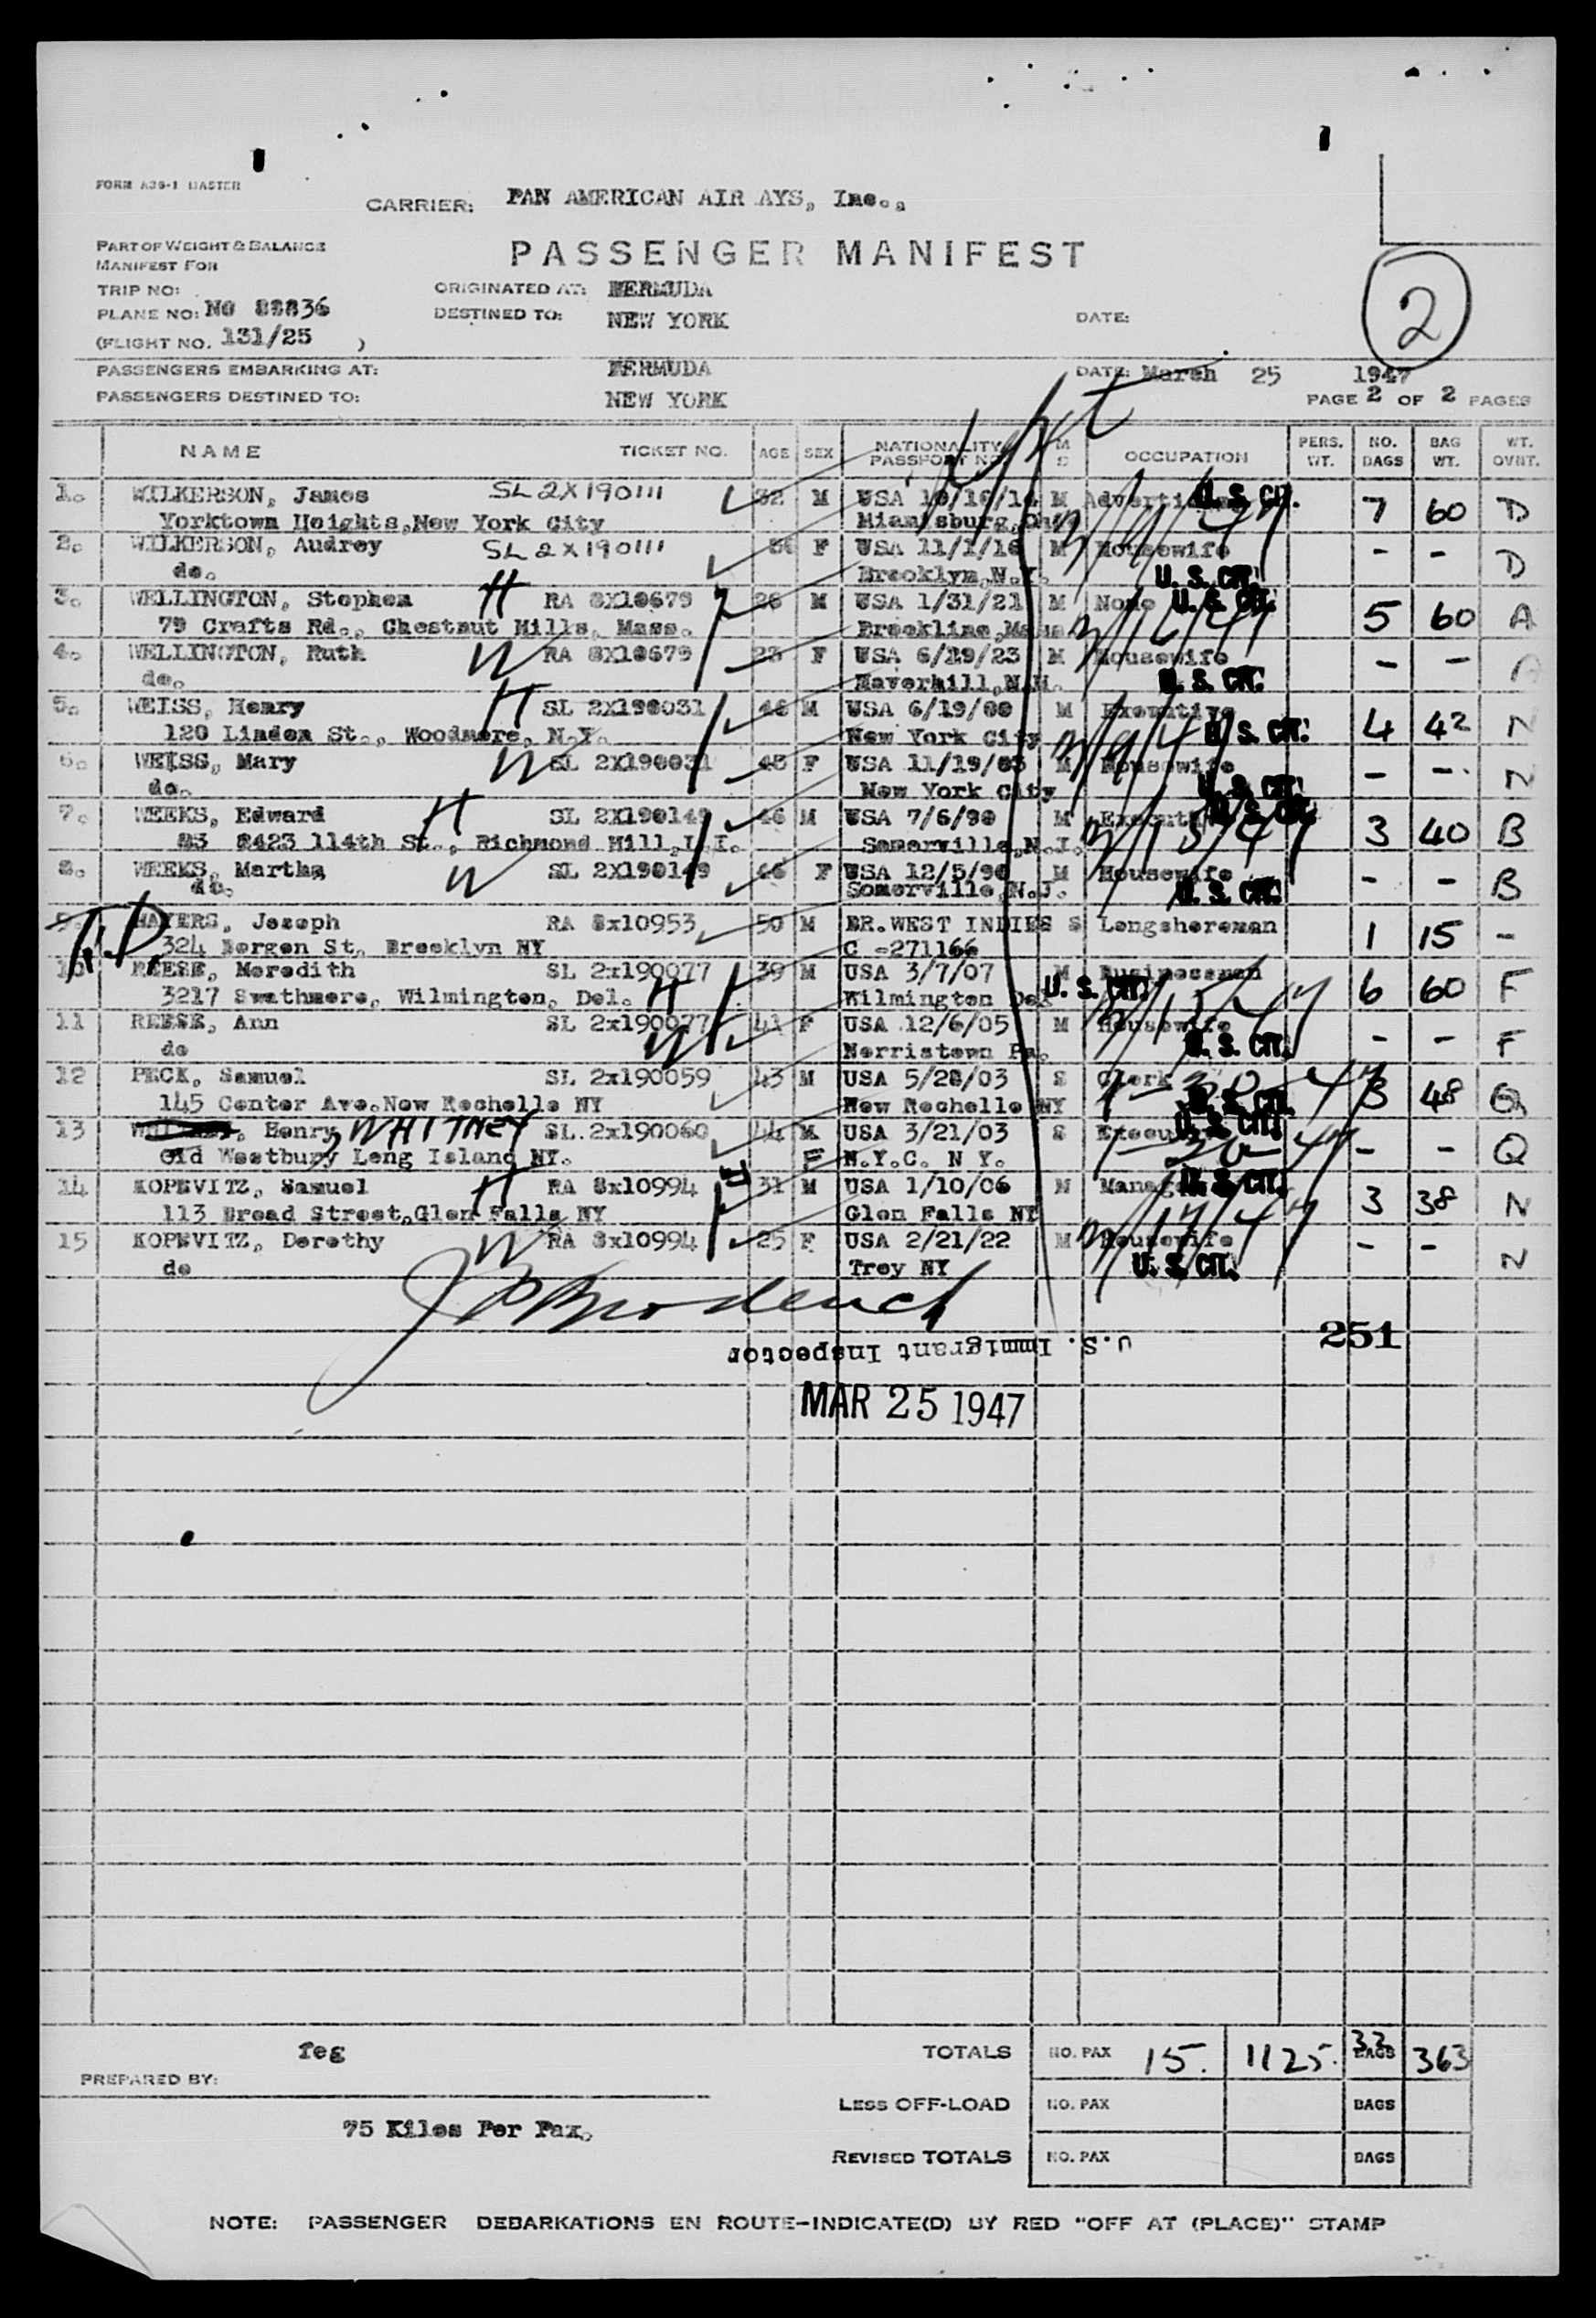 FORM A36-1 MASTER
CARRIER: PAN AMERICAN AIR AYS, Inc.,
PART OF WEIGHT & BALANCE
MANIFEST FOR
PASSENGER MANIFEST
TRIP NO:
ORIGINATED AT: BERMUDA
PLANE NO: NO 88836
DESTINED TO: NEW YORK
DATE:
2
(FLIGHT NO. 131/25 )
PASSENGERS EMBARKING AT: BERMUDA
DATE: March 25 1947
PASSENGERS DESTINED TO: NEW YORK
PAGE 2 OF 2 PAGES
NAME TICKET NO. AGE SEX NATIONALITY PASSPORT NO. M S OCCUPATION PERS. WT. NO. BAGS BAG WT. WT. OVHT.
1. WILKERSON, James SL 2X190111 32 M USA M U.S. CIT. 7 60 D
Yorktown Heights, New York City Miamisburg, Ohio
2. WILKERSON, Audrey SL 2X190111 F USA 11/1/16 M Housewife - - D
do. Brooklyn, N.Y. U. S. CIT.
3. WELLINGTON, Stephen H RA 8X10679 26 M USA 1/31/21 M None U. S. CIT. 5 60 A
79 Crafts Rd., Chestnut Hills, Mass. Brookline, Mass
4. WELLINGTON, Ruth W RA 8X10679 23 F USA 6/19/23 M Housewife - - A
do. Haverhill, N.H. U. S. CIT.
5. WEISS, Henry H SL 2X190031 46 M USA 6/19/00 M Executive 4 42 N
120 Linden St., Woodmere, N.Y. New York City U. S. CIT.
6. WEISS, Mary W SL 2X190031 43 F USA 11/19/03 M Housewife - - N
do. New York City U. S. CIT.
7. WEEKS, Edward H SL 2X190149 46 M USA 7/6/90 M Executive U. S. CIT. 3 40 B
83 8423 114th St., Richmond Hill, L.I. Somerville, N.J.
8. WEEKS, Martha W SL 2X190149 46 F USA 12/5/90 M Housewife - - B
do. Somerville, N.J. U. S. CIT.
9. HAYERS, Joseph RA 8x10953 50 M BR. WEST INDIES S Longshoreman 1 15 -
324 Bergen St. Brooklyn NY C -271166
10 REESE, Meredith SL 2x190077 39 M USA 3/7/07 M Businessman 6 60 F
3217 Swathmore, Wilmington, Del. H Wilmington Del U. S. CIT.
11 REESE, Ann SL 2x190077 41 F USA 12/6/05 M Housewife - - F
do W Norristown Pa. U. S. CIT.
12 PECK, Samuel SL 2x190059 43 M USA 5/28/03 S Clerk 3 48 Q
145 Center Ave. New Rochelle NY New Rochelle NY U. S. CIT.
13 , Henry WHITNEY SL.2x190060 44 M USA 3/21/03 S U. S. CIT. - - Q
Old Westbury Long Island NY. F N.Y.C. N Y.
14 KOPEVITZ, Samuel H RA 8x10994 31 M USA 1/10/06 M U. S. CIT. 3 38 N
113 Broad Street, Glen Falls NY Glen Falls NY
15 KOPEVITZ, Dorothy W RA 8x10994 25 F USA 2/21/22 M Housewife - - N
do Troy NY U. S. CIT.
U.S. Immigrant Inspector
251
MAR 25 1947
feg
TOTALS NO. PAX 15. 1125. 32 BAGS 363
PREPARED BY:
LESS OFF-LOAD NO. PAX BAGS
75 Kilos Per Pax.
REVISED TOTALS NO. PAX BAGS
NOTE: PASSENGER DEBARKATIONS EN ROUTE-INDICATE(D) BY RED "OFF AT (PLACE)" STAMP